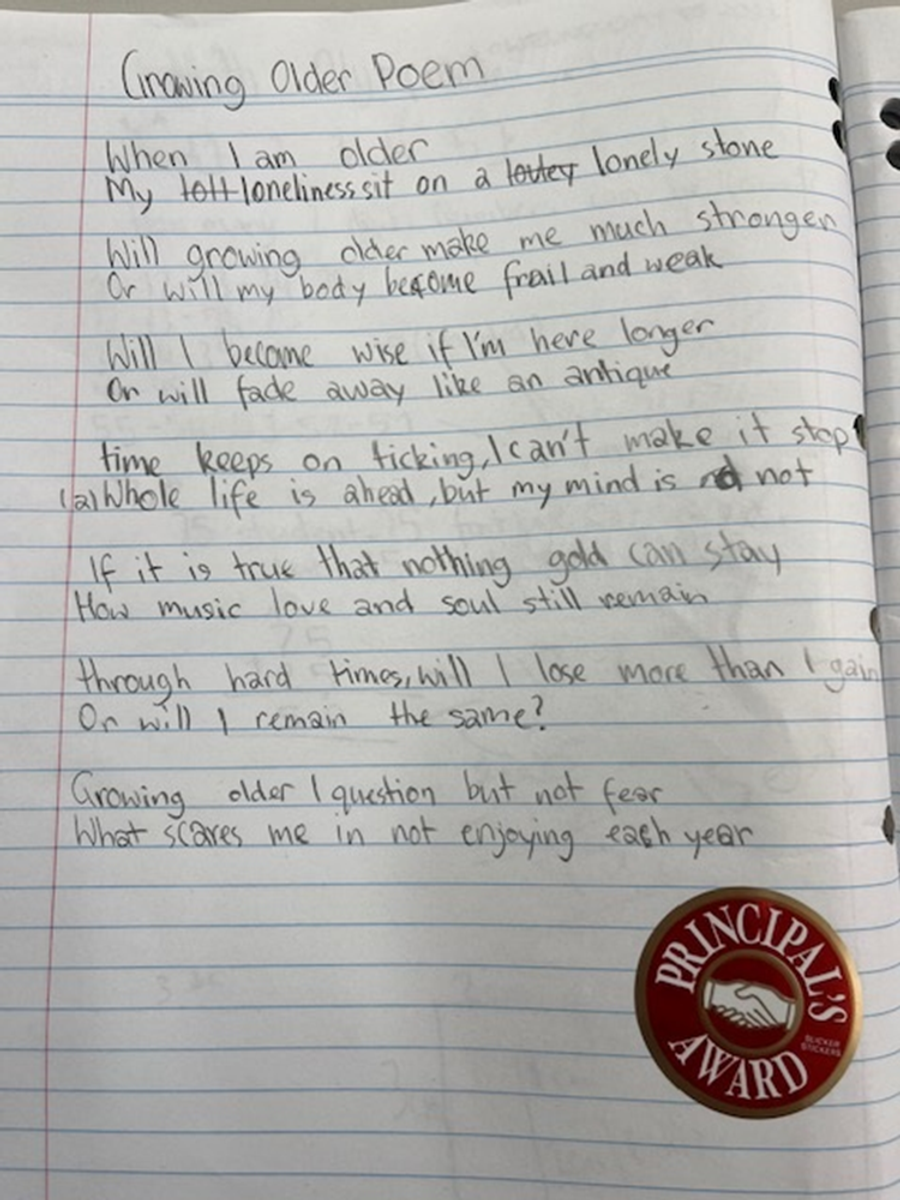 Growing Older Poem
When I am older
My loneliness sit on a lonely stone
Will growing older make me much stronger
Or will my body become frail and weak
Will I become wise if I'm here longer
Or will fade away like an antique
time keeps on ticking, I can't make it stop
(a) Whole life is ahead, but my mind is not
If it is true that nothing gold can stay
How music love and soul still remain
through hard times, will I lose more than I gain
Or will I remain the same?
Growing older I question but not fear
What scares me in not enjoying each year
PRINCIPAL'S
AWARD
SLICKER
STICKERS